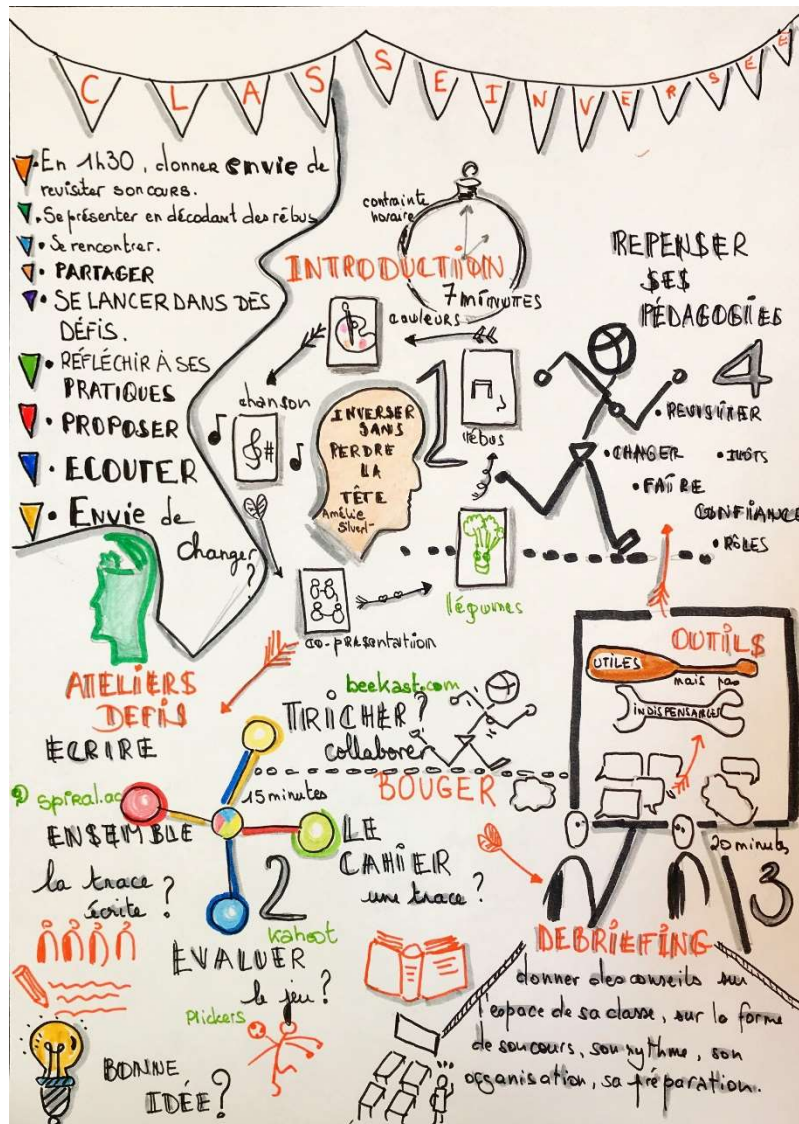 CLASSE INVERSÉE
• En 1h30, donner envie de
revisiter son cours.
• Se présenter en décodant des rébus
• Se rencontrer.
• PARTAGER
• SE LANCER DANS DES
DÉFIS.
• RÉFLÉCHIR À SES
PRATIQUES
• PROPOSER
• ECOUTER
• Envie de
changer
?
contrainte
horaire
INTRODUCTION
7 MINUTES
couleurs
chanson
1
rébus
INVERSER
SANS
PERDRE
LA
TÊTE
Amélie
légumes
co-présentation
REPENSER
SES
PÉDAGOGIES
4
• REVISITER
• CHANGER
• ILÔTS
• FAIRE
CONFIANCE
• RÔLES
ATELIERS
DEFIS
ECRIRE
spiral.ac
ENSEMBLE
la trace
écrite ?
beekast.com
TRICHER ?
collaborer
15 minutes
BOUGER
LE
CAHIER
une trace ?
2
kahoot
EVALUER
le jeu ?
Plickers
BONNE
IDÉE ?
OUTILS
UTILES
mais pas
INDISPENSABLES
20 minutes
3
DEBRIEFING
donner des conseils sur
l'espace de sa classe, sur la forme
de son cours, son rythme, son
organisation, sa préparation.